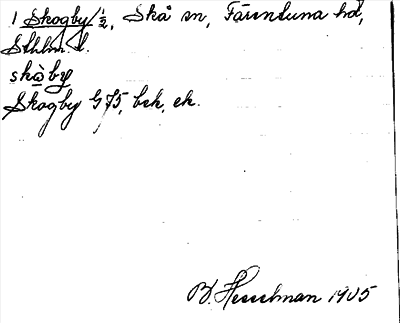 1 Skogby 1/2, Skå sn, Färentuna hd,
Sthlm l.
skòby
Skogby G 75, bek, ek.
B. Hesselman 1905